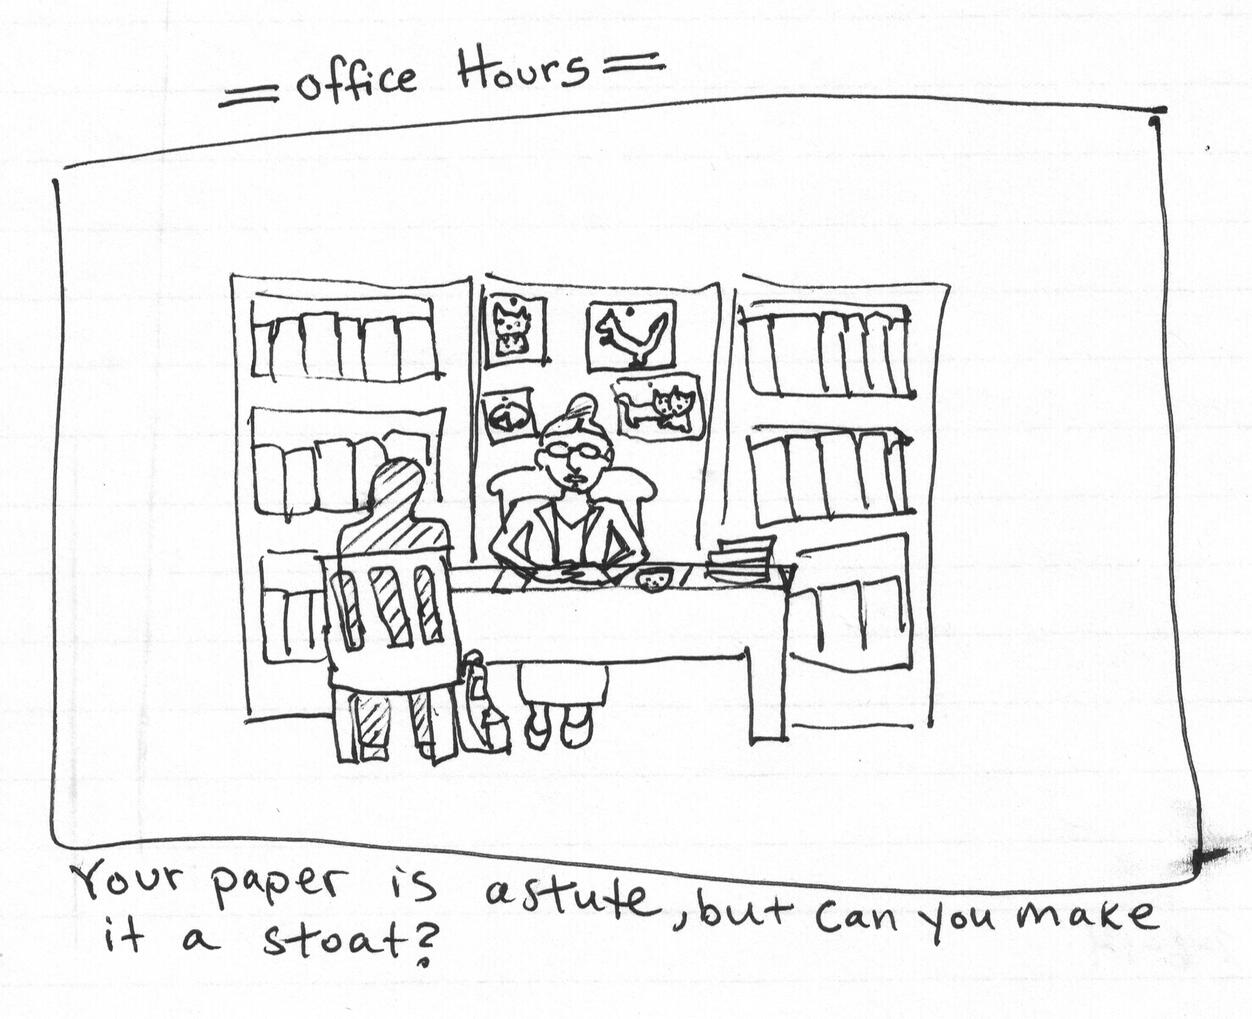 = Office Hours =
Your paper is astute, but can you make
it a stoat?